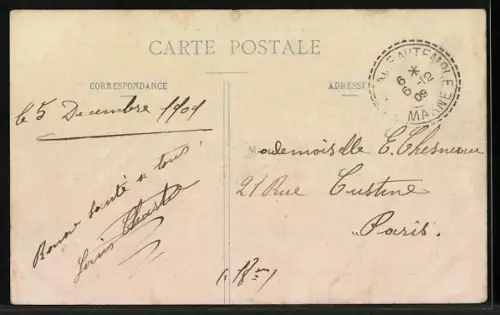 CARTE POSTALE
CORRESPONDANCE
ADRESSE
le 5 Decembre 1909
Bonne santé a tous!
Louis
Mademoiselle E. Chesneau
21 Rue Custine
Paris.
(18e)
6 * 6-12 09
MARNE